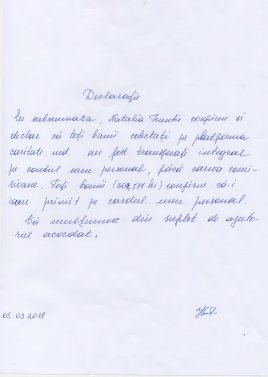 Declarație
Eu subsemnata, Natalia confirm și
declar că toți banii colectați pe platforma
caritate.md. au fost transferați integral
pe contul meu personal, fără careva comi-
sioane. Toți banii ( lei) confirm că-i
am primit pe cardul meu personal.
Vă mulțumesc din suflet de ajuto-
rul acordat.
05.03.2018